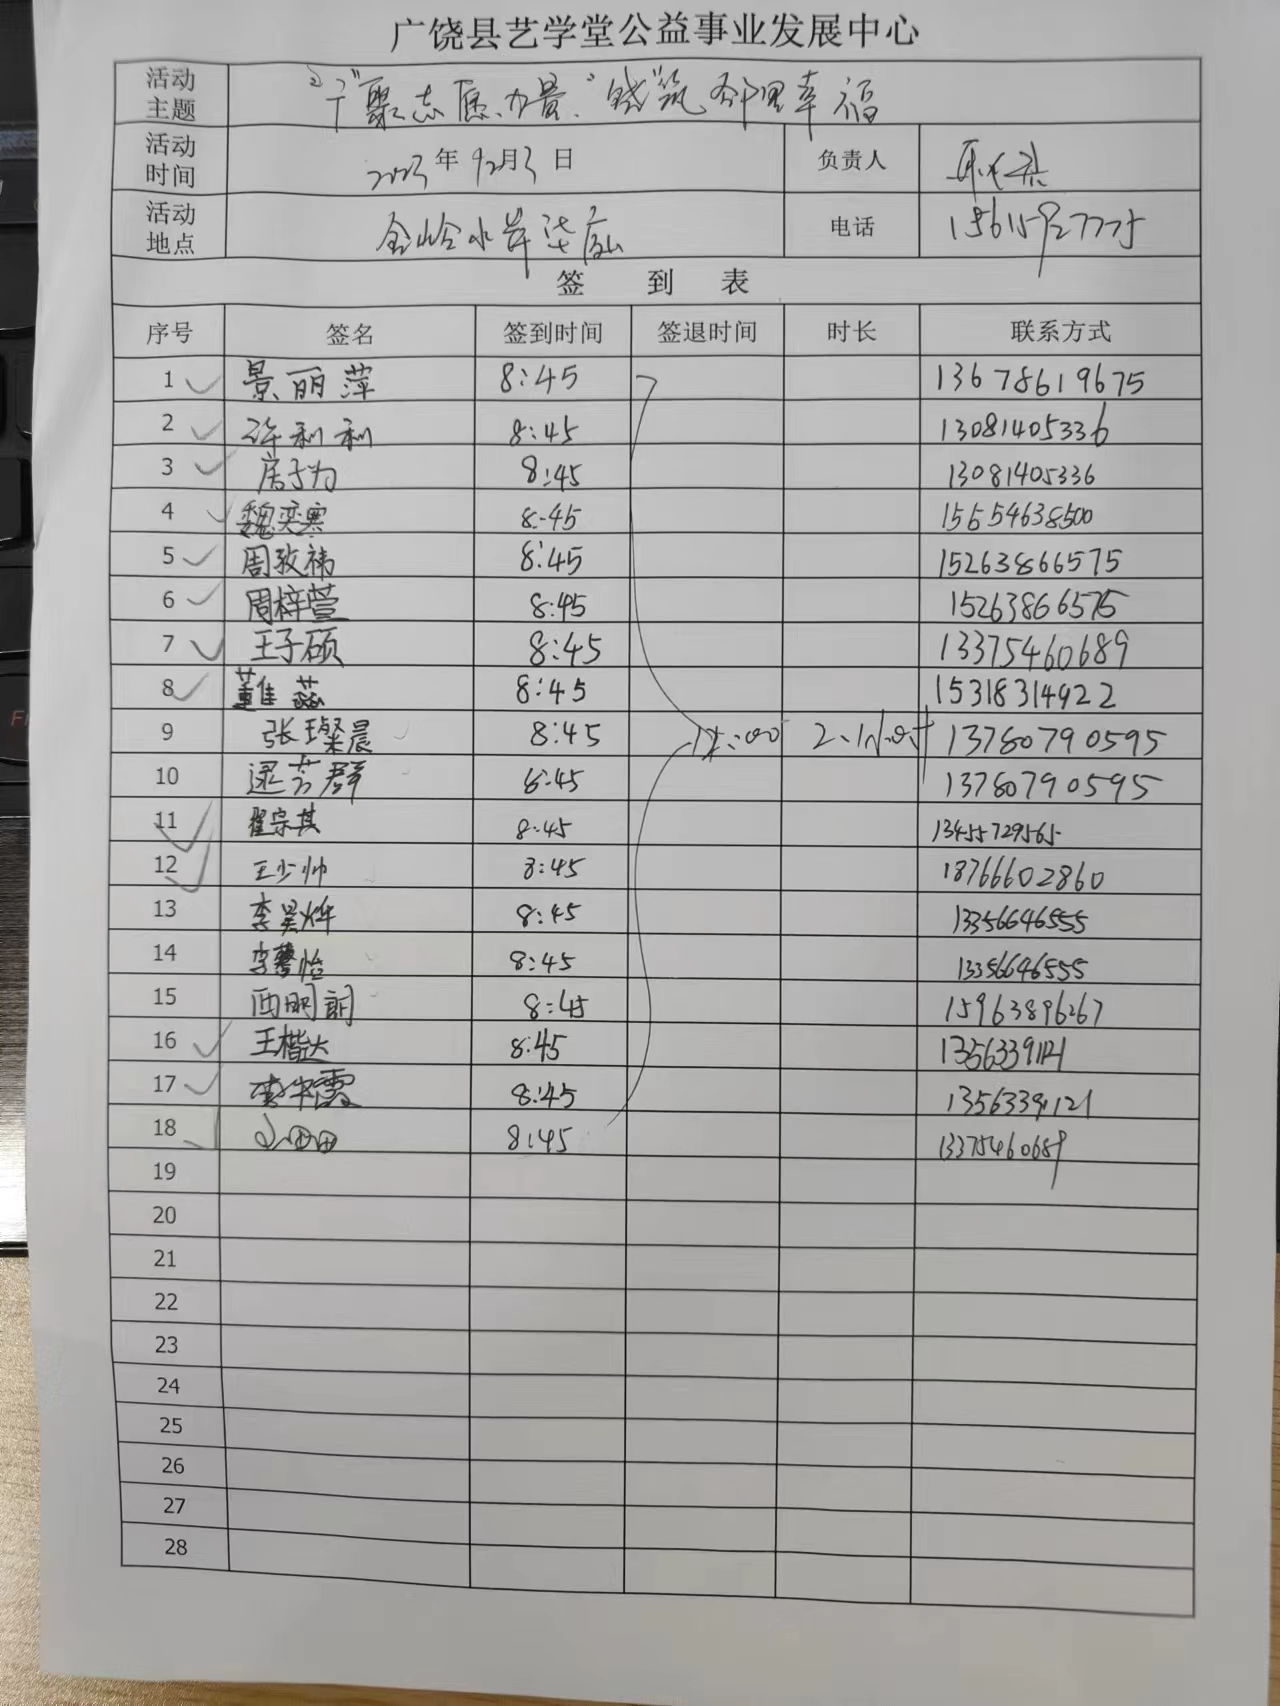 广饶县艺学堂公益事业发展中心
活动主题 "广"聚志愿力量 "饶"筑邻里幸福
活动时间 2023年9月3日 负责人
活动地点 金岭水岸 电话
签到表
序号 签名 签到时间 签退时间 时长 联系方式
1 景丽萍 8:45 13678619675
2 许利利 8:45 13081405336
3 房子为 8:45 13081405336
4 魏奕寒 8:45 15654638500
5 周致祎 8:45 15263866575
6 周梓萱 8:45 15263866575
7 王子硕 8:45 13375460689
8 董佳 8:45 15318314922
9 张璨晨 8:45 2小时 13780790595
10 逯芳群 8:45 13780790595
11 翟宗其 8:45 13455729565
12 王少帅 8:45 18766602860
13 李昊烨 8:45 13356646555
14 李馨怡 8:45 13356646555
15 8:45 15963896267
16 王楷达 8:45 13563391121
17 8:45 13563391121
18 8:45 13375460689
19
20
21
22
23
24
25
26
27
28